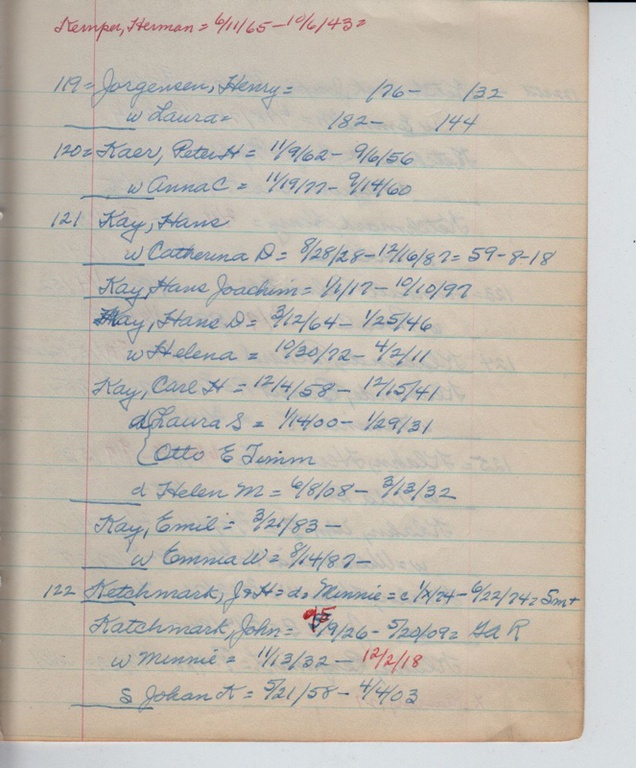 Kemper, Herman = 6/11/65 - 10/6/43 =
119 = Jorgensen, Henry = /76 - /32
w Laura = /82 - /44
120 = Kaer, Peter H = 11/9/62 - 9/6/56
w Anna C = 11/19/77 - 9/14/60
121 Kay, Hans
w Catherina D = 8/28/28 - 12/16/87 = 59-8-18
Kay, Hans Joachim = 1/6/17 - 10/10/97
Kay, Hans D = 3/12/64 - 1/25/46
w Helena = 10/30/72 - 4/2/11
Kay, Carl H = 12/4/58 - 12/15/41
d Laura S = 1/14/00 - 1/29/31
Otto E Timm
d Helen M = 6/8/08 - 3/13/32
Kay, Emil = 3/21/83 -
w Emma W = 8/14/87 -
122 Ketchmark, J & H = d. Minnie = c 1/ /74 - 6/22/74 = 5m+
Katchmark, John = /9/26 - 5/20/09 = R
w Minnie = 11/13/32 - 12/2/18
s Johan K = 5/21/58 - 4/4/03